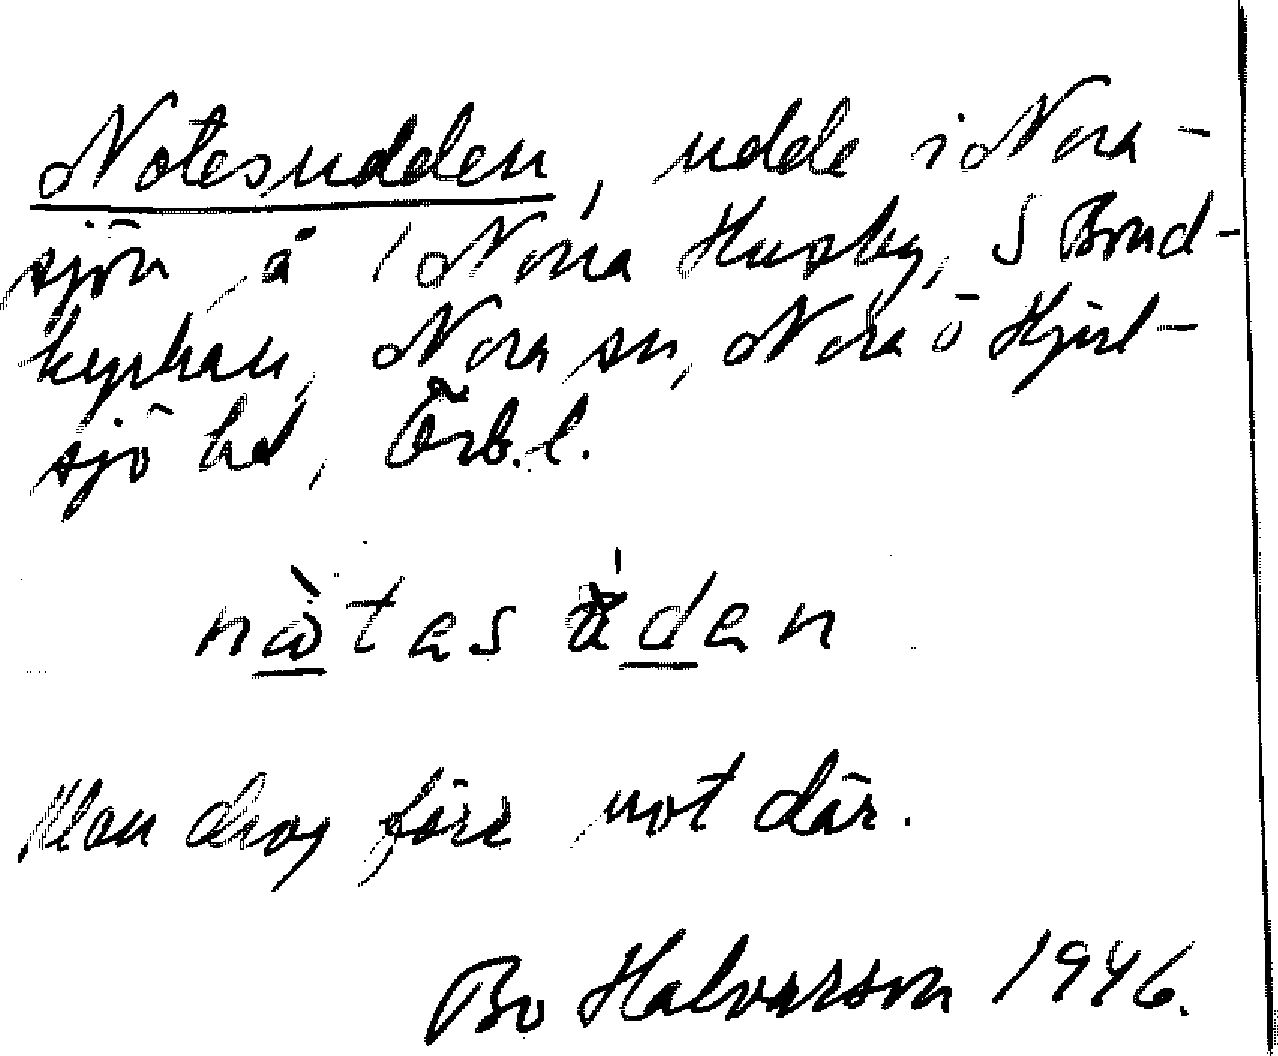 Notesudden, udde i Nora-
sjön å 1 Norra Husby, S Bond-
kyrkan, Nora sn, Nora o Hjul-
sjö hd, Örb. l.
nɷ̀tesɷ̀den
Man drog förr not där.
Bo Halvarson 1946.